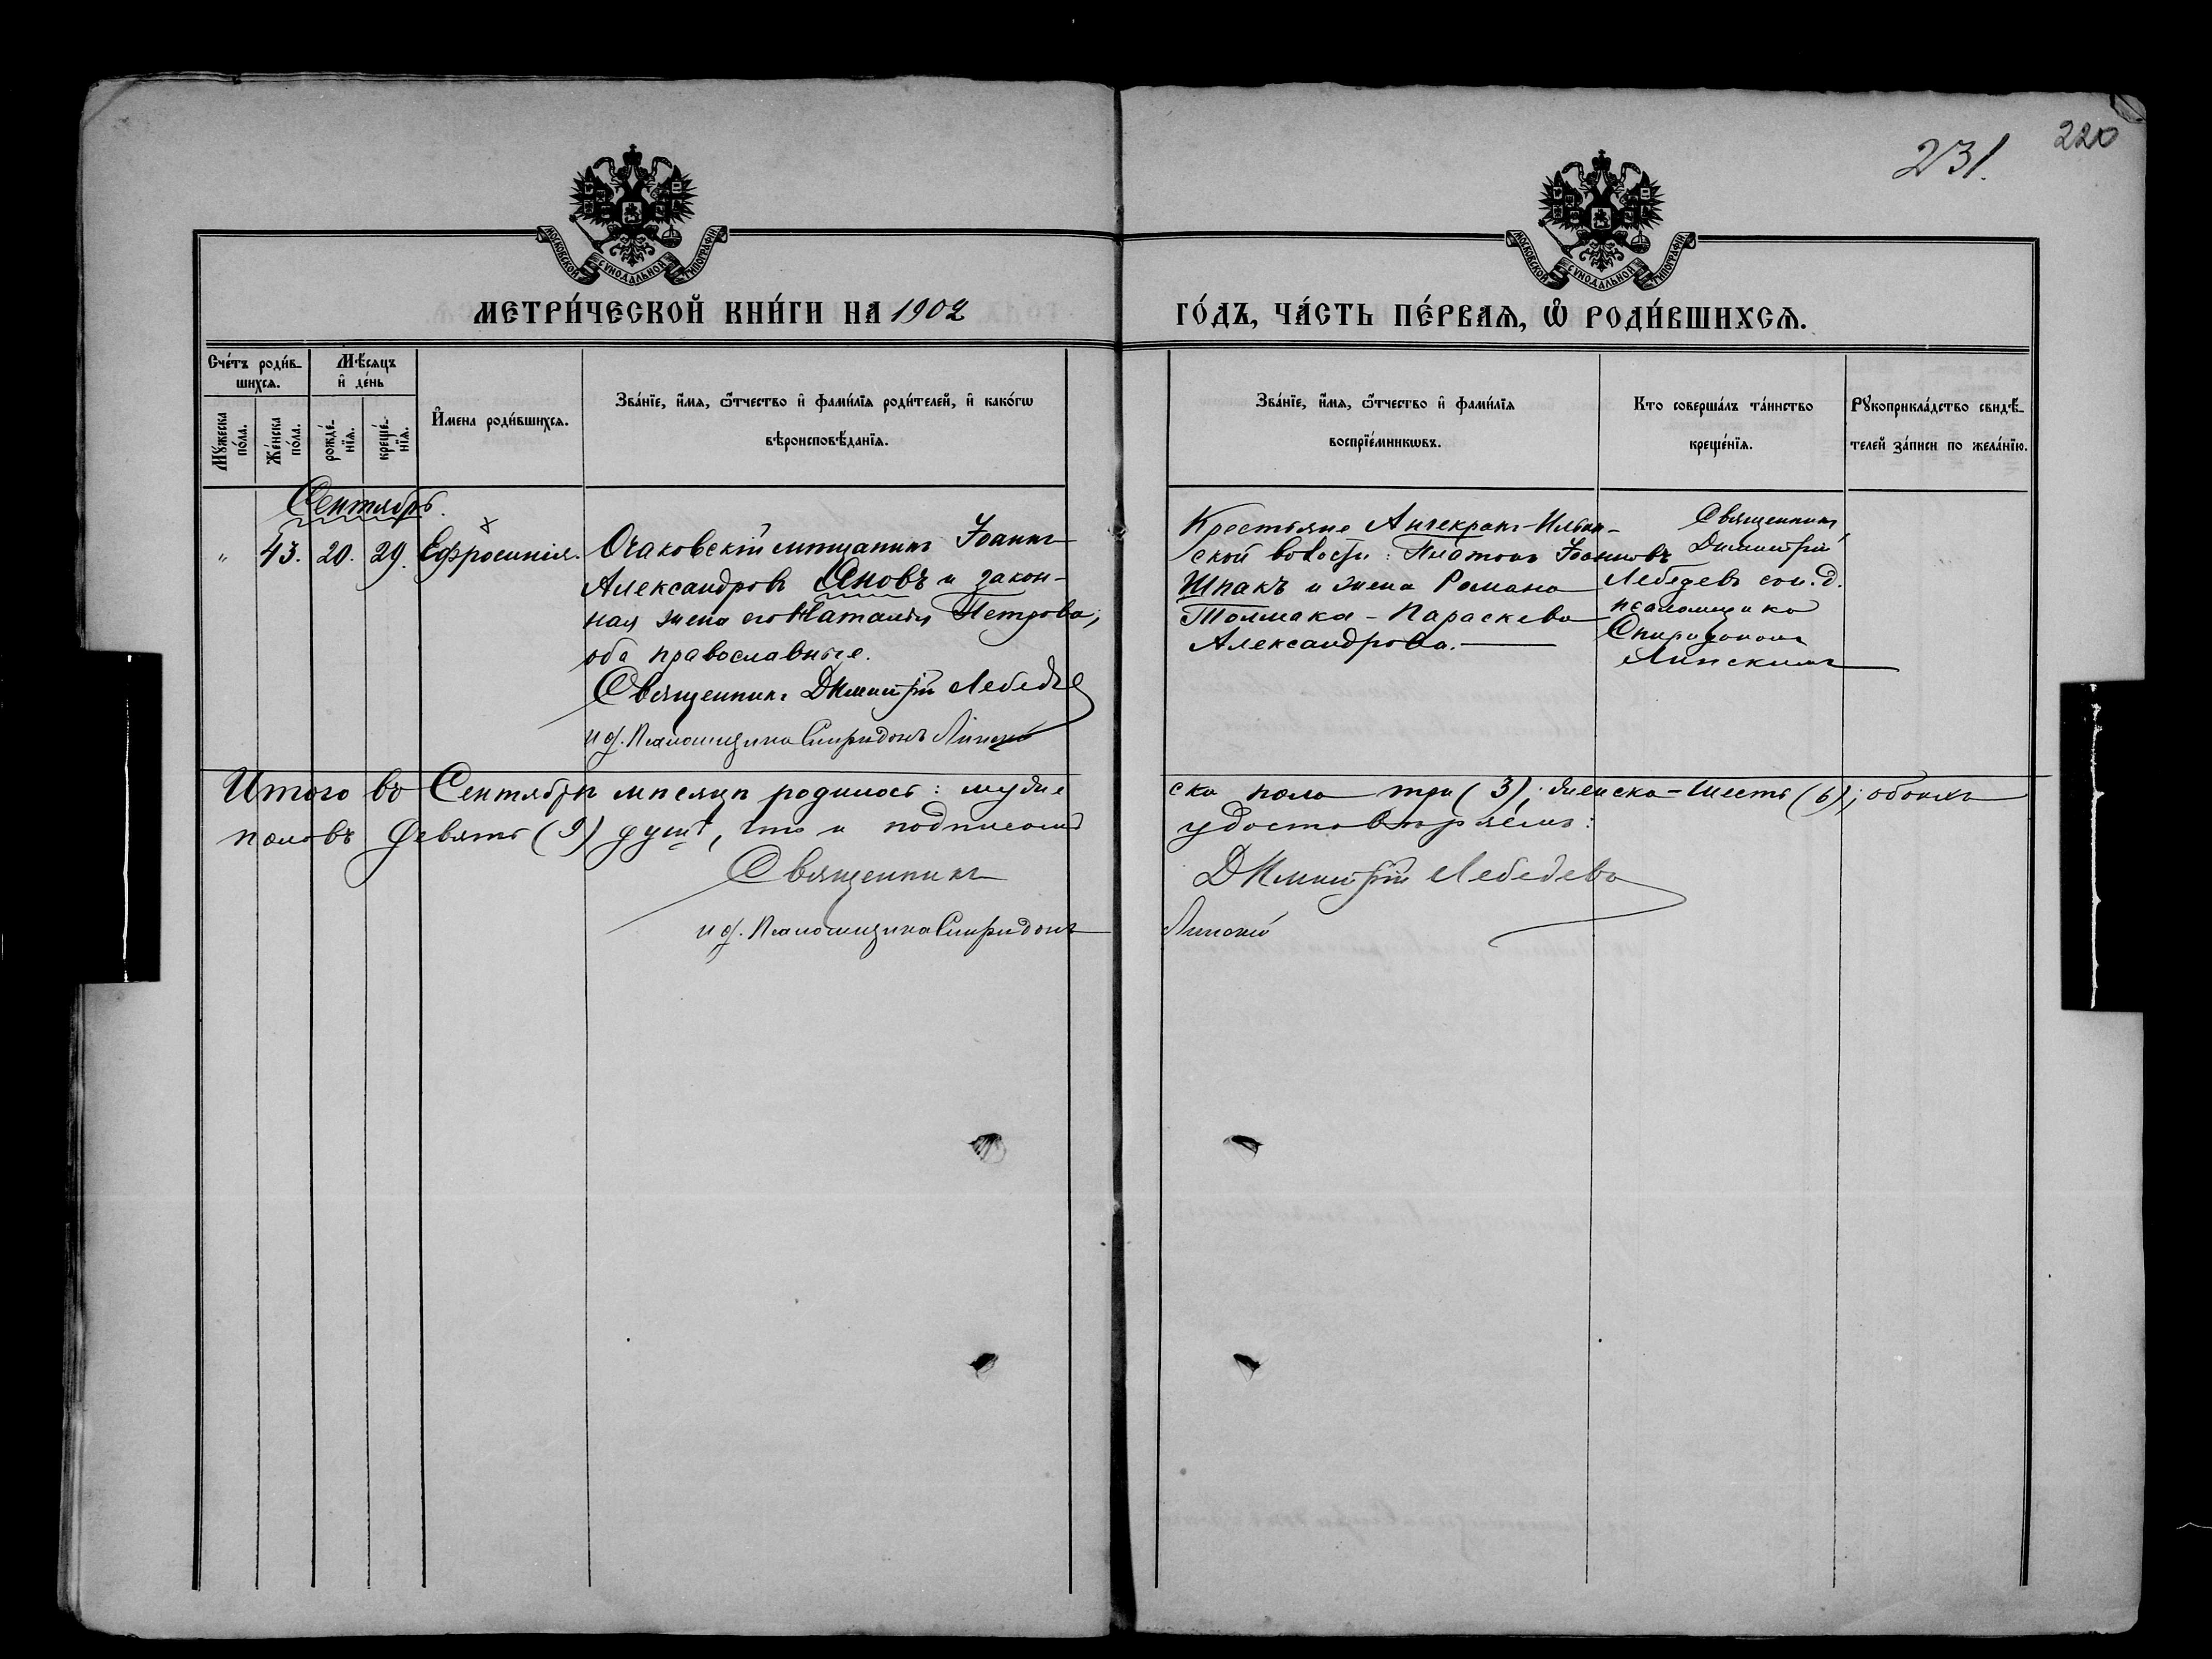 231.
220
МОСКОВСКОЙ СѴНОДАЛЬНОЙ ТИПОГРАФІИ
МОСКОВСКОЙ СѴНОДАЛЬНОЙ ТИПОГРАФІИ
МЕТРИ́ЧЕСКОЙ КНИ́ГИ НА 1902
ГО́ДЪ, ЧА́СТЬ ПЕ́РВАЯ, Ѽ РОДИ́ВШИХСЯ.
Сче́тъ роди́в-
шихся.
Мꙋ́жеска
по́ла.
Же́нска
по́ла.
Мѣ́сяцъ
и҆ де́нь
рожде́-
нїя.
креще́-
нїя.
И҆мена роди́вшихся.
Зва́нїе, и҆́мя, ѻ҆́тчество и҆ фами́лїя роди́телей, и҆ како́гѡ
вѣроисповѣ́данїя.
Зва́нїе, и҆́мя, ѻ҆́тчество и҆ фами́лїя
воспрїе́мникѡвъ.
Кто соверша́лъ та́инство
креще́нїя.
Рꙋкоприкла́дство свидѣ́-
телей за́писи по жела́нїю.
Сентябрь.
" 43. 20. 29. Ефросинія.
Очаковскій мѣщанинъ Іоаннъ
Александровъ Яновъ и закон-
ная жена его Наталія Петрова,
оба православные.
Священникъ Димитрій Лебедевъ
и. д. Псаломщика Спиридонъ Линскій
Крестьяне
ской волости: Платонъ Іоанновъ
Шпакъ и жена Романа
Толмака - Параскева
Александрова.
Священникъ
Димитрій
Лебедевъ со и. д.
псаломщика
Спиридономъ
Линскимъ
Итого въ Сентябрѣ мѣсяцѣ родилось: мужескa пола три (3); женска - шесть (6); обоихъ
половъ девять (9) душъ, что и подписомъ удостовѣряемъ:
Священникъ Димитрій Лебедевъ
и. д. Псаломщика Спиридонъ Линскій